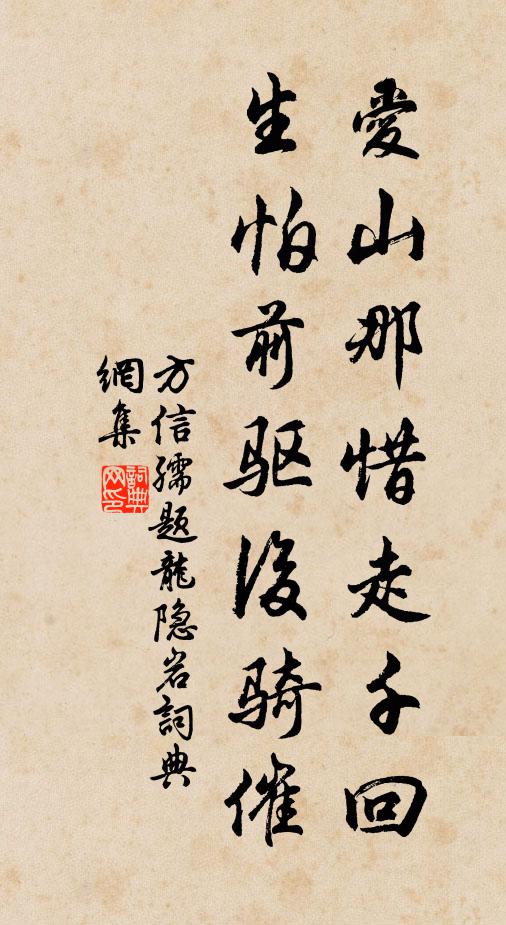 愛山那惜走千回
生怕前驱後騎催
方信孺題龍隐岩詞典
網集
詞典
网印